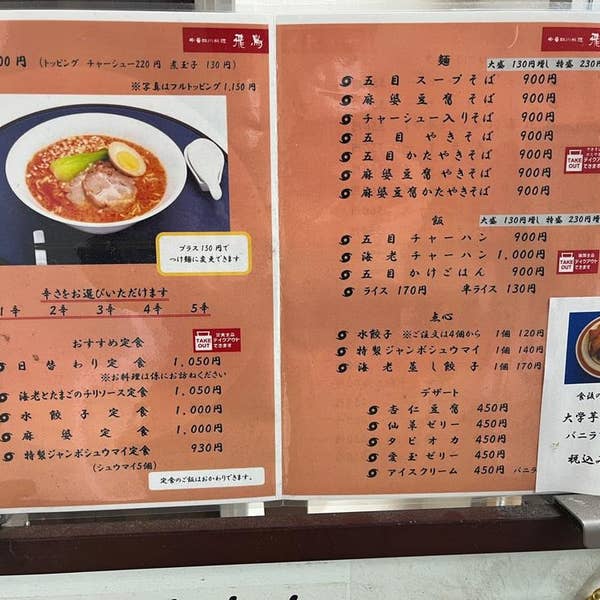 飛鳥
00円 (トッピング チャーシュー220円 煮玉子 130円)
※写真はフルトッピング1,150円
プラス150円で
つけ麺に変更できます
辛さをお選びいただけます
1辛 2辛 3辛 4辛 5辛
おすすめ定食
TAKE OUT
テイクアウト
できます
日替わり定食 1,050円
※お料理は係にお訪ねください
海老とたまごのチリソース定食 1,050円
水餃子定食 1,000円
麻婆定食 1,000円
特製ジャンボシュウマイ定食 930円
(シュウマイ5個)
定食のご飯はおかわりできます。
飛鳥
麺 大盛 130円増し 特盛 230円
五目スープそば 900円
麻婆豆腐そば 900円
チャーシュー入りそば 900円
五目やきそば 900円
五目かたやきそば 900円
麻婆豆腐かたやきそば 900円
TAKE OUT
テイクアウト
できます
飯 大盛 130円増し 特盛 230円増
五目チャーハン 900円
海老チャーハン 1,000円
五目かけごはん 900円
ライス 170円 半ライス 130円
TAKE OUT
テイクアウト
できます
点心
水餃子 ※ご注文は4個から 1個 120円
特製ジャンボシュウマイ 1個 140円
海老蒸し餃子 1個 170円
デザート
杏仁豆腐 450円
仙草ゼリー 450円
タピオカ 450円
愛玉ゼリー 450円
アイスクリーム 450円 バニラ
食後の
大学芋
バニラ
税込